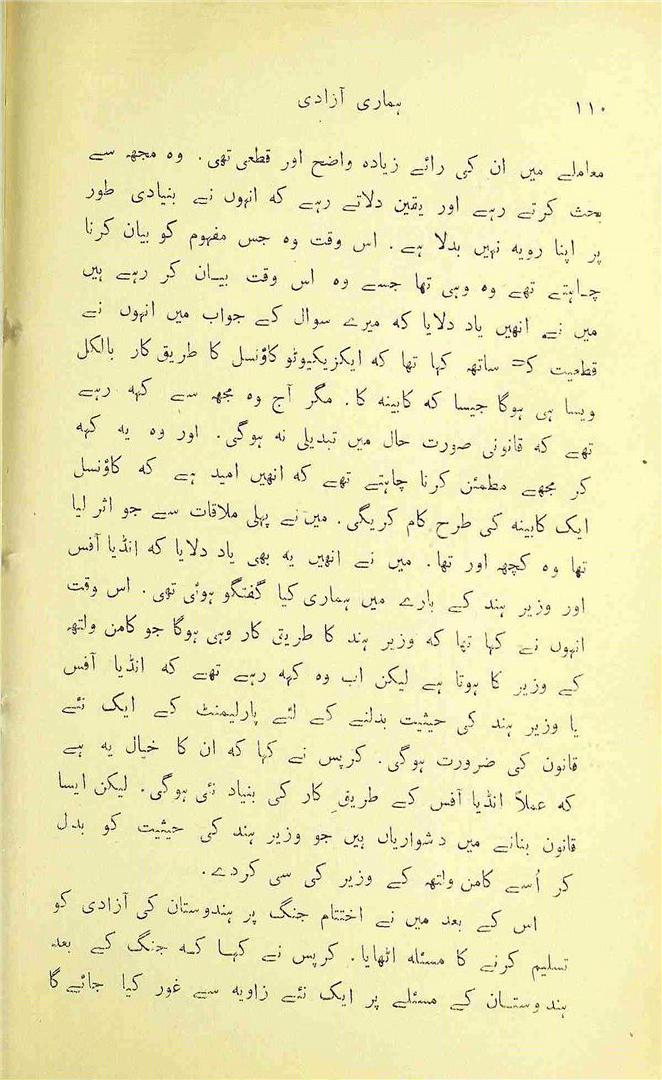 ۱۱۰ ہماری آزادی
معاملے میں ان کی رائے زیادہ واضح اور قطعی تھی۔ وہ مجھ سے
بحث کرتے رہے اور یقین دلاتے رہے کہ انہوں نے بنیادی طور
پر اپنا رویہ نہیں بدلا ہے۔ اس وقت وہ جس مفہوم کو بیان کرنا
چاہتے تھے وہ وہی تھا جسے وہ اس وقت بیان کر رہے ہیں
میں نے انھیں یاد دلایا کہ میرے سوال کے جواب میں انہوں نے
قطعیت کے ساتھ کہا تھا کہ ایکزیکیوٹو کاؤنسل کا طریق کار بالکل
ویسا ہی ہوگا جیسا کہ کابینہ کا۔ مگر آج وہ مجھ سے کہہ رہے
تھے کہ قانونی صورت حال میں تبدیلی نہ ہوگی۔ اور وہ یہ کہہ
کر مجھے مطمئن کرنا چاہتے تھے کہ انھیں امید ہے کہ کاؤنسل
ایک کابینہ کی طرح کام کریگی۔ میں نے پہلی ملاقات سے جو اثر لیا
تھا وہ کچھ اور تھا۔ میں نے انھیں یہ بھی یاد دلایا کہ انڈیا آفس
اور وزیر ہند کے بارے میں ہماری کیا گفتگو ہوئی تھی۔ اس وقت
انہوں نے کہا تھا کہ وزیر ہند کا طریق کار وہی ہوگا جو کامن ولتھ
کے وزیر کا ہوتا ہے لیکن اب وہ کہہ رہے تھے کہ انڈیا آفس
یا وزیر ہند کی حیثیت بدلنے کے لئے پارلیمنٹ کے ایک نئے
قانون کی ضرورت ہوگی۔ کرپس نے کہا کہ ان کا خیال یہ ہے
کہ عملاً انڈیا آفس کے طریقِ کار کی بنیاد نئی ہوگی۔ لیکن ایسا
قانون بنانے میں دشواریاں ہیں جو وزیر ہند کی حیثیت کو بدل
کر اُسے کامن ولتھ کے وزیر کی سی کردے۔
اس کے بعد میں نے اختتام جنگ پر ہندوستان کی آزادی کو
تسلیم کرنے کا مسئلہ اٹھایا۔ کرپس نے کہا کہ جنگ کے بعد
ہندوستان کے مسئلے پر ایک نئے زاویہ سے غور کیا جائے گا